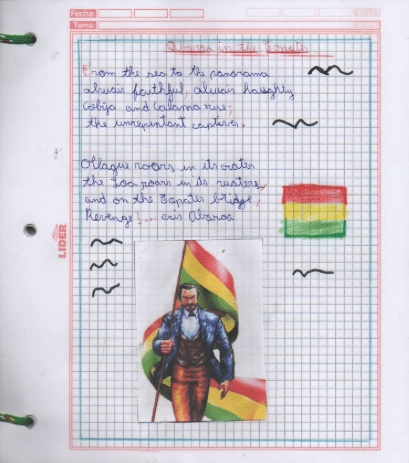 Fecha:
Tema:
Abaroa in the Topater
From the sea to the panorama
alwais faithful, alwais haughty
Cobija and Calama rise;
the unrepentant captives.
Ollague roars in its crater
the Loa roars in its waters,
and on the Topater bridge,
Revenge!... cries Abaroa
LIDER